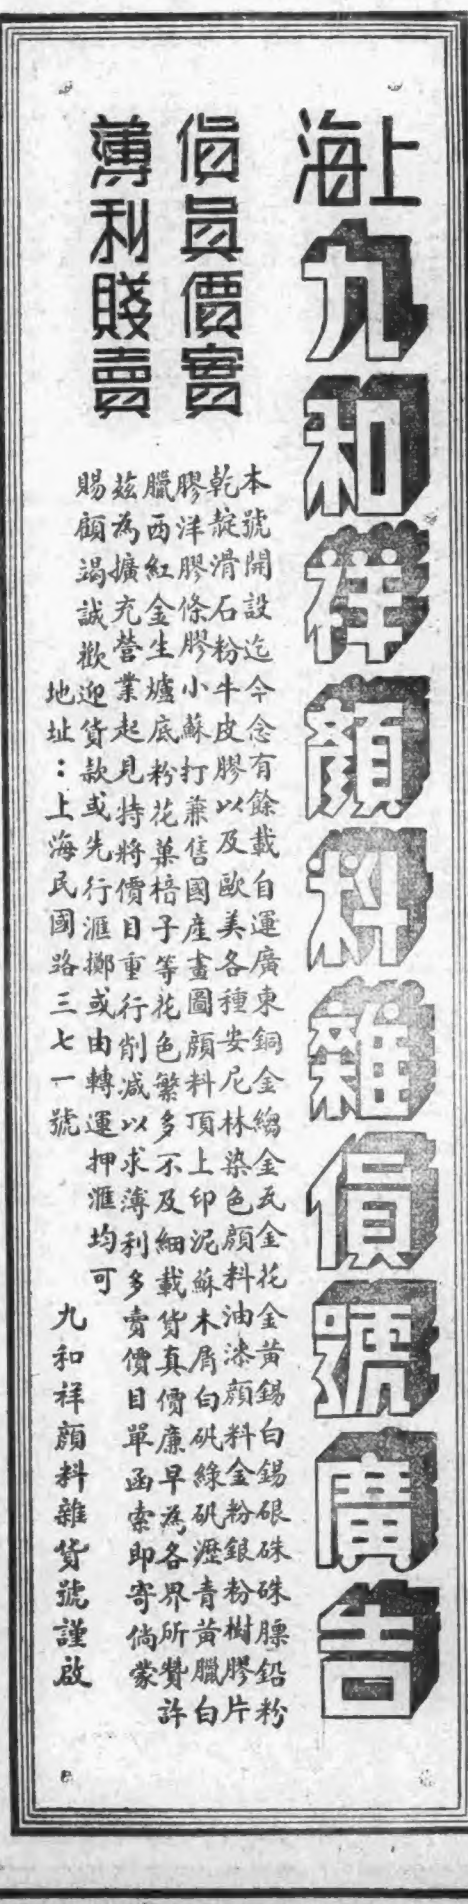 上海
九和祥顏料雜貨號廣告
貨真價實
薄利賤賣
本號開設迄今念有餘載自運廣東銅金縐金瓦金花金黃錫白錫硍硃硃膘鉛粉
乾靛滑石粉牛皮膠以及歐美各種安尼林染色顏料油漆顏料金粉銀粉樹膠片
膠洋膠條膠小蘇打兼售國產畫圖顏料頂上印泥蘇木屑白矾綠矾瀝青黃臘白
臘西紅金生爐底粉花菓棓子等花色繁多不及細載貨真價廉早為各界所贊許
茲為擴充營業起見特將價目重行削減以求薄利多賣價目單函索即寄倘蒙
賜顧竭誠歡迎貨款或先行滙擲或由轉運押滙均可
地址：上海民國路三七一號
九和祥顏料雜貨號謹啟